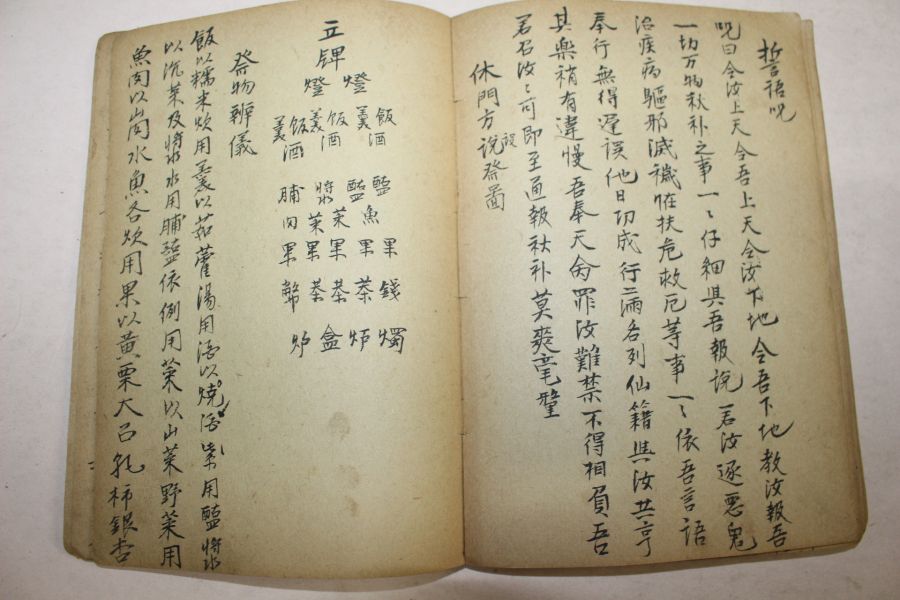 誓語呪
呪曰令汝上天令吾上天令汝下地令吾下地教汝報吾
一切万物秋补之事一〻仔細與吾報說若汝逐惡鬼
治疾病驅邪滅穢保扶危救厄等事一〻依吾言語
奉行無得遲誤他日功成行滿各列仙籍與汝共亨
其樂稍有違慢吾奉天命罪汝難禁不得相負吾
若召汝〻可即至通報秋补莫爽毫釐
休門方說設祭圖
飯酒羹 鹽 果 錢 燭
燈 飯酒羹 醢魚 果 茶 炉
立鉀燈 飯酒羹 將水菜 果 茶 盒
飯酒羹 脯肉果 幣 炉
祭物辨儀
飯以糯米炊用羹以茹藿湯用酒以燒酒案用醢將水
以沉菜及將水水用脯鹽依例用菜以山菜野菜用
魚肉以山肉水魚各炊用果以黃栗大召乳柿銀杏